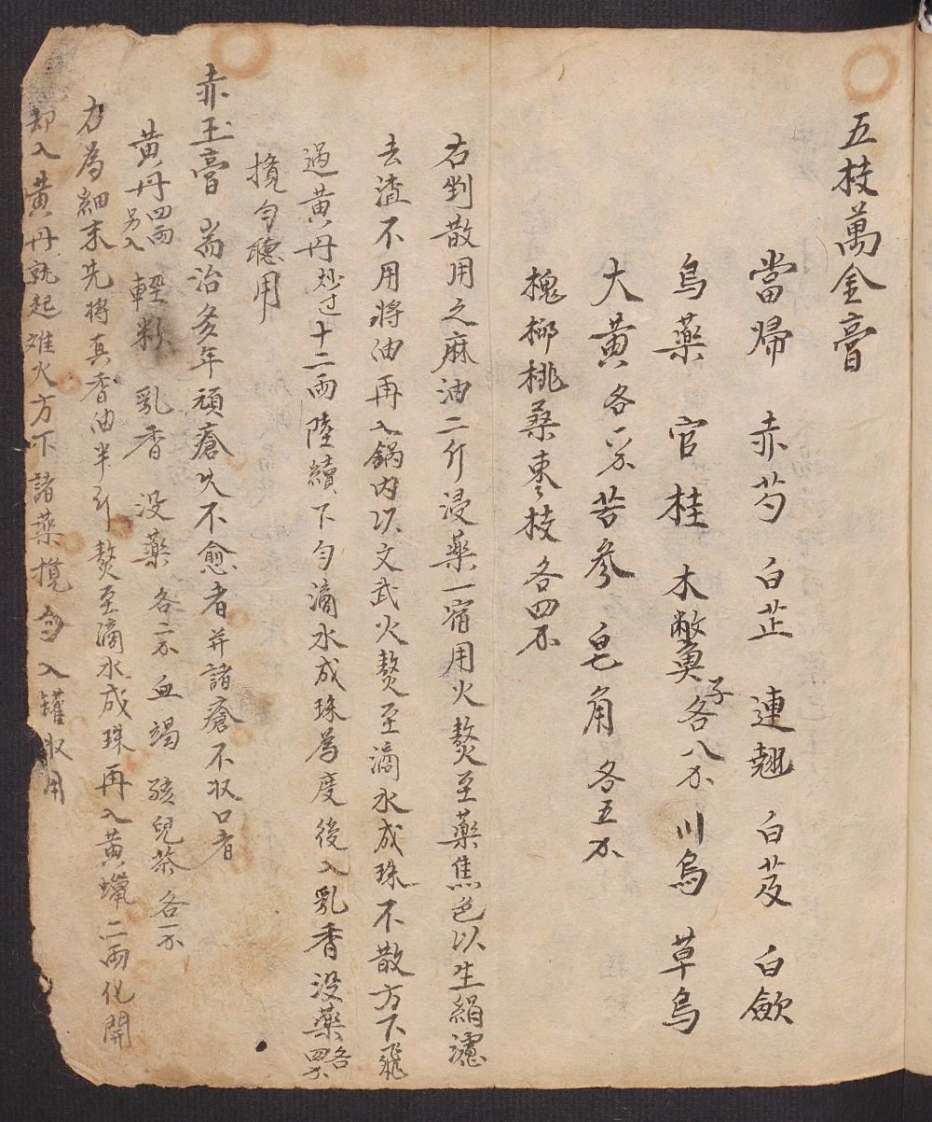 五枝萬金膏
當歸 赤芍 白芷 連翹 白芨 白歛
烏藥 官桂 木鱉子各八 川烏 草烏
大黃各 苦參 皂角 各五
槐栁桃桑枣枝各四
右剉散用之麻油二斤浸藥一宿用火熬至藥焦色以生絹濾
去渣不用將油再入鍋內以文武火熬至滴水成珠不散方下飛
過黃丹炒过十二兩陸續下勻滴水成珠為度後入乳香没藥各四
攪勻聽用
赤玉膏 耑治多年頑瘡久不愈者并諸瘡不收口者
黃丹四兩另入 輕粉 乳香 没藥 各二 血竭 孩兒茶 各一
為細末先將真香油半斤熬至滴水成珠再入黃蠟二兩化開
却入黃丹就起離火方下諸藥攪勻入罐收用